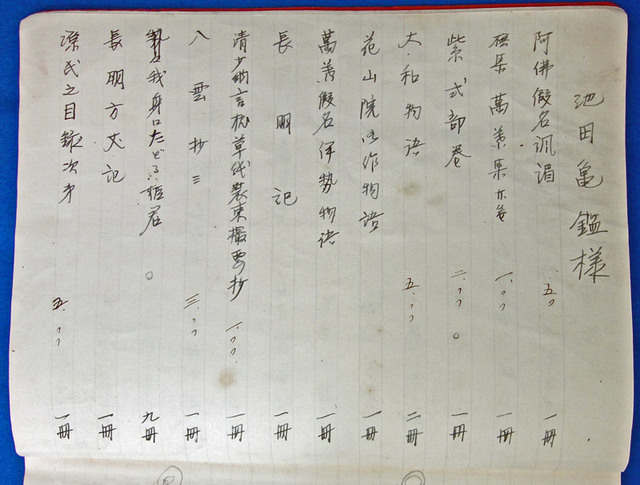 池田亀鑑様
阿佛假名諷誦 五〇 一冊
萬葉集 一、〃〃 一冊
紫式部巻 二、〃〃 一冊
大和物語 五、〃〃 二冊
花山院御作物語 一冊
萬葉假名伊勢物語 一冊
長明記 一冊
清少納言枕草紙装束撮要抄 一、〃〃 一冊
八雲抄三 三、〃〃 一冊
我身にたどる姫君 九冊
長明方丈記 一冊
源氏之目録次第 五、〃〃 一冊